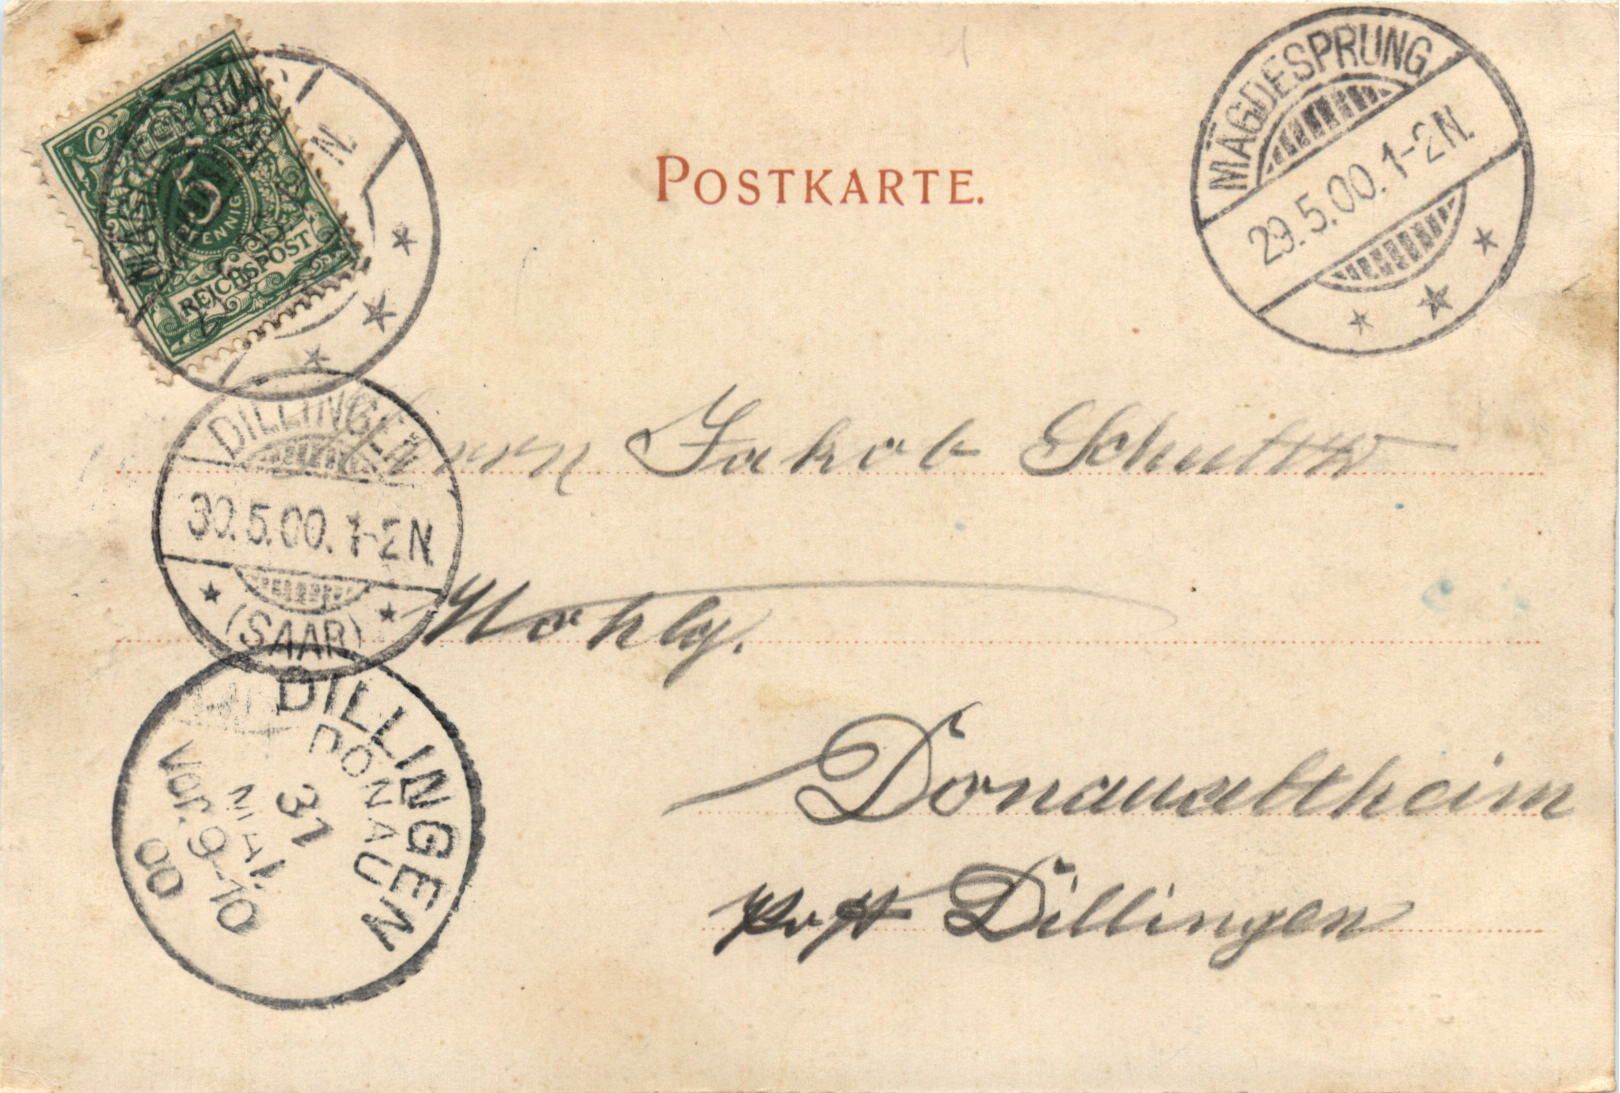 POSTKARTE.
MÄGDESPRUNG
29.5.00.1-2N.
5
PFENNIG
REICHSPOST
N.
Herrn Jakob
Wohlg.
Donaualtheim
Post Dillingen
DILLINGEN
30.5.00.1-2N
(SAAR)
DILLINGEN
DONAU
31
MAI.
Vor. 9-10
00